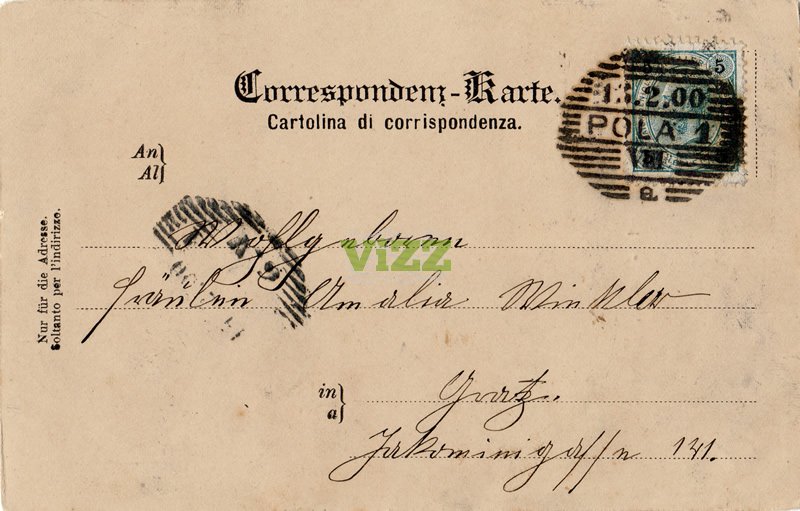 Correspondenz-Karte.
Cartolina di corrispondenza.
5
13.2.00
POLA 1
VIII
a
An
Al
Nur für die Adresse.
Soltanto per l'indirizzo.
Wohlgeboren
vizz
Fräulein Amalia Winkler
in
a
Gratz.
Jakominigasse 141.